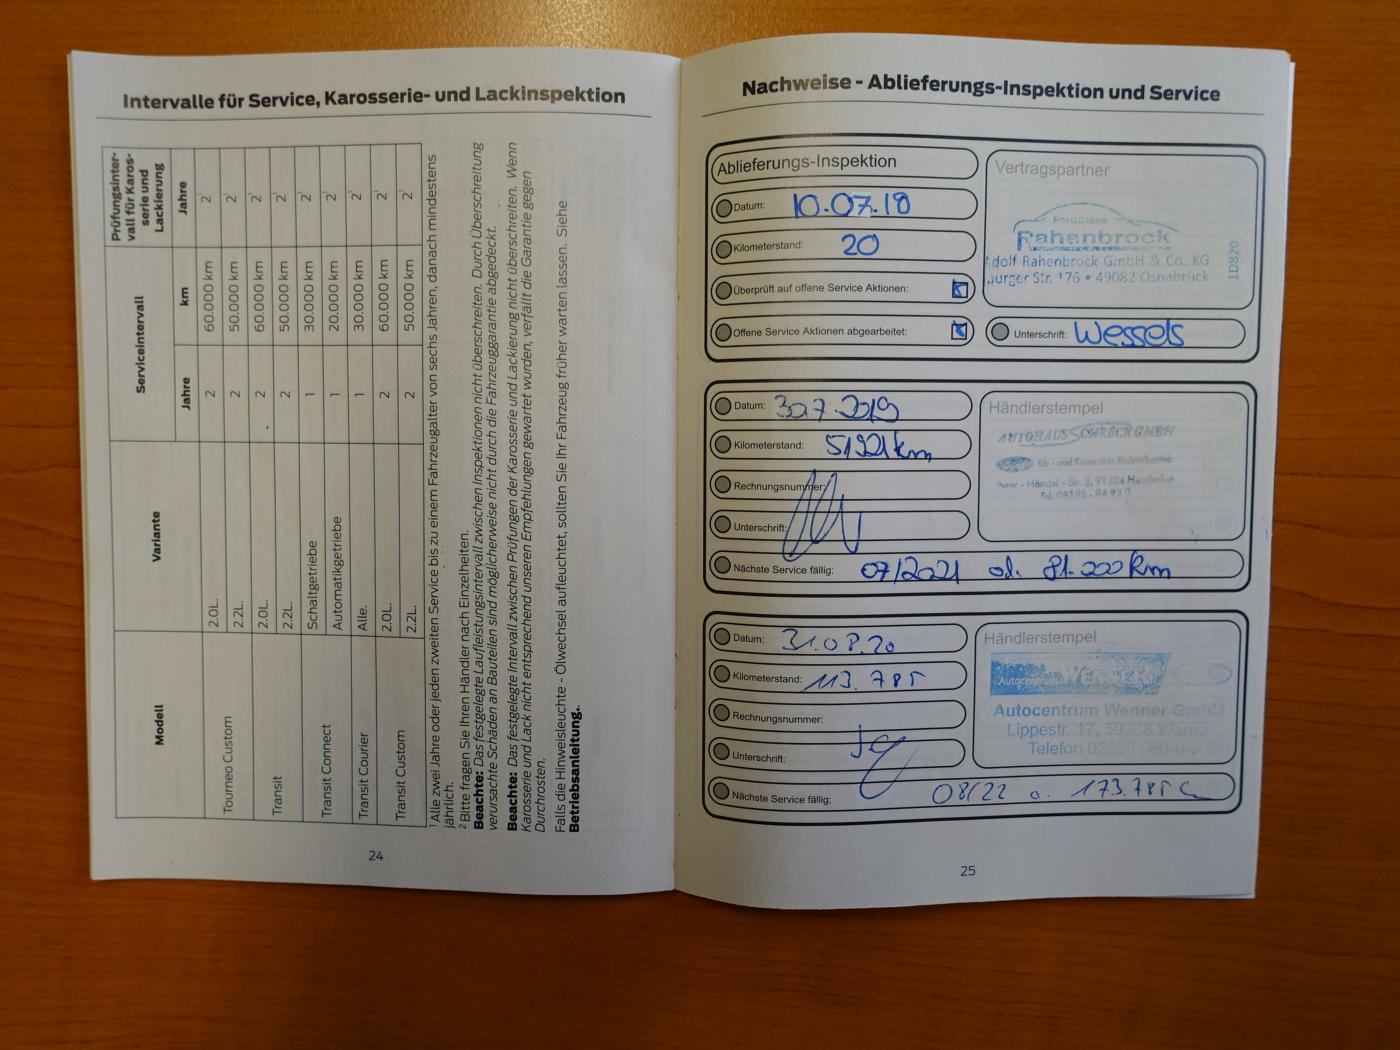 Intervalle für Service, Karosserie- und Lackinspektion
Modell Variante Serviceintervall Prüfungsinter-
vall für Karos-
serie und
Lackierung
Jahre km Jahre
Tourneo Custom 2.0L. 2 60.000 km 2¹
2.2L. 2 50.000 km 2¹
Transit 2.0L. 2 60.000 km 2¹
2.2L. 2 50.000 km 2¹
Transit Connect Schaltgetriebe 1 30.000 km 2¹
Automatikgetriebe 1 20.000 km 2¹
Transit Courier Alle. 1 30.000 km 2¹
Transit Custom 2.0L. 2 60.000 km 2¹
2.2L. 2 50.000 km 2¹
¹ Alle zwei Jahre oder jeden zweiten Service bis zu einem Fahrzeugalter von sechs Jahren, danach mindestens
jährlich.
² Bitte fragen Sie Ihren Händler nach Einzelheiten.
Beachte: Das festgelegte Laufleistungsintervall zwischen Inspektionen nicht überschreiten. Durch Überschreitung
verursachte Schäden an Bauteilen sind möglicherweise nicht durch die Fahrzeuggarantie abgedeckt.
Beachte: Das festgelegte Intervall zwischen Prüfungen der Karosserie und Lackierung nicht überschreiten. Wenn
Karosserie und Lack nicht entsprechend unseren Empfehlungen gewartet wurden, verfällt die Garantie gegen
Durchrosten.
Falls die Hinweisleuchte - Ölwechsel aufleuchtet, sollten Sie Ihr Fahrzeug früher warten lassen. Siehe
Betriebsanleitung.
24
Nachweise - Ablieferungs-Inspektion und Service
Ablieferungs-Inspektion
Datum: 10.07.18
Kilometerstand: 20
Überprüft auf offene Service Aktionen:
Offene Service Aktionen abgearbeitet:
Vertragspartner
FordStore
Rahenbrock
Adolf Rahenbrock GmbH & Co. KG
burger Str. 176 • 49082 Osnabrück
1D820
Unterschrift: Wessels
Datum: 30.7.2019
Kilometerstand: 51221 km
Rechnungsnummer:
Unterschrift:
Nächste Service fällig: 07/2021 od. 81.200 km
Händlerstempel
AUTOHAUS SCHRECK GMBH
Kfz - und Karosserie Meisterbetrieb
- Händel - Str. 3, 91334 Hemhofen
Tel. 09195 -
Datum: 31.08.20
Kilometerstand: 113.785
Rechnungsnummer:
Unterschrift:
Nächste Service fällig: 08/22 o. 173.785
Händlerstempel
Autocentrum WENNER
Autocentrum Wenner GmbH
Lippestr. 17, 59368 Werne
Telefon 02389 980 0
25